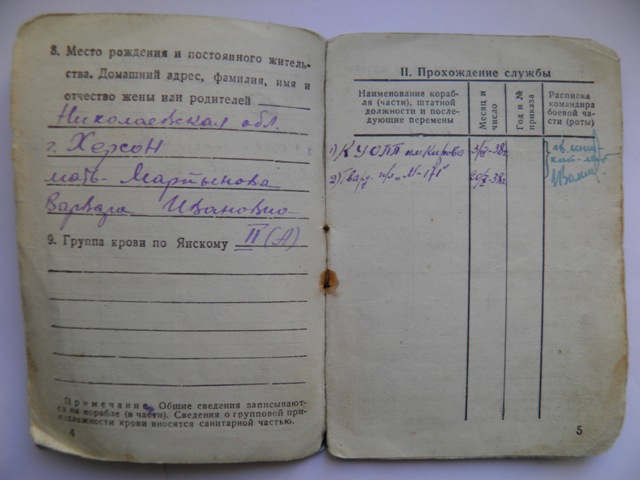 8. Место рождения и постоянного житель-
ства. Домашний адрес, фамилия, имя и
отчество жены или родителей
Николаевская обл.
г. Херсон
мать- Мартынова
Варвара Ивановна
9. Группа крови по Янскому II (А)
Примечание. Общие сведения записывают-
ся на корабле (в части). Сведения о групповой при-
надлежности крови вносятся санитарной частью.
4
II. Прохождение службы
Наименование кораб-
ля (части), штатной
должности и после-
дующие перемены
Месяц и
число
Год и №
приказа
Расписка
командира
боевой ча-
сти (роты)
1) КУОПП им. Кирова
2) Гвард. п/л „М-171"
5